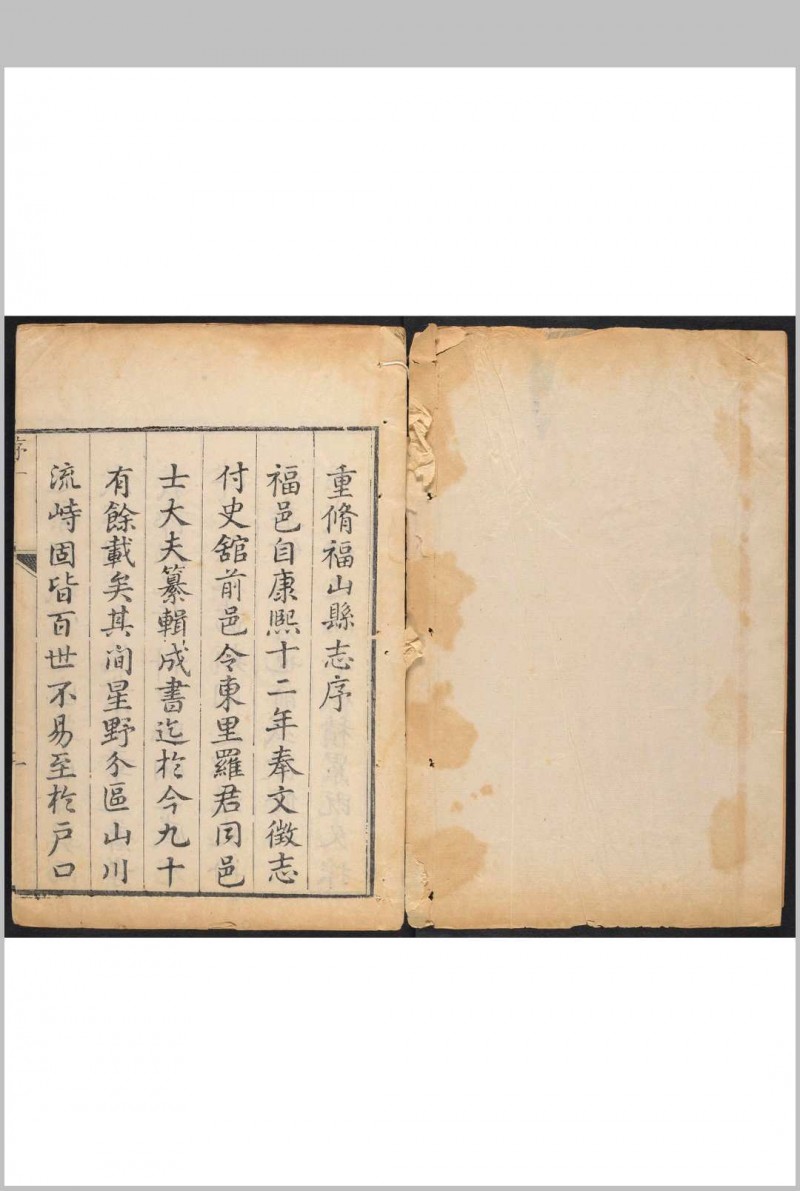 重脩福山縣志序
福邑自康熙十二年奉文徵志
付史舘前邑令東里羅君同邑
士大夫纂輯成書迄於今九十
有餘載矣其間星野分區山川
流峙固皆百世不易至於戶口
序 一